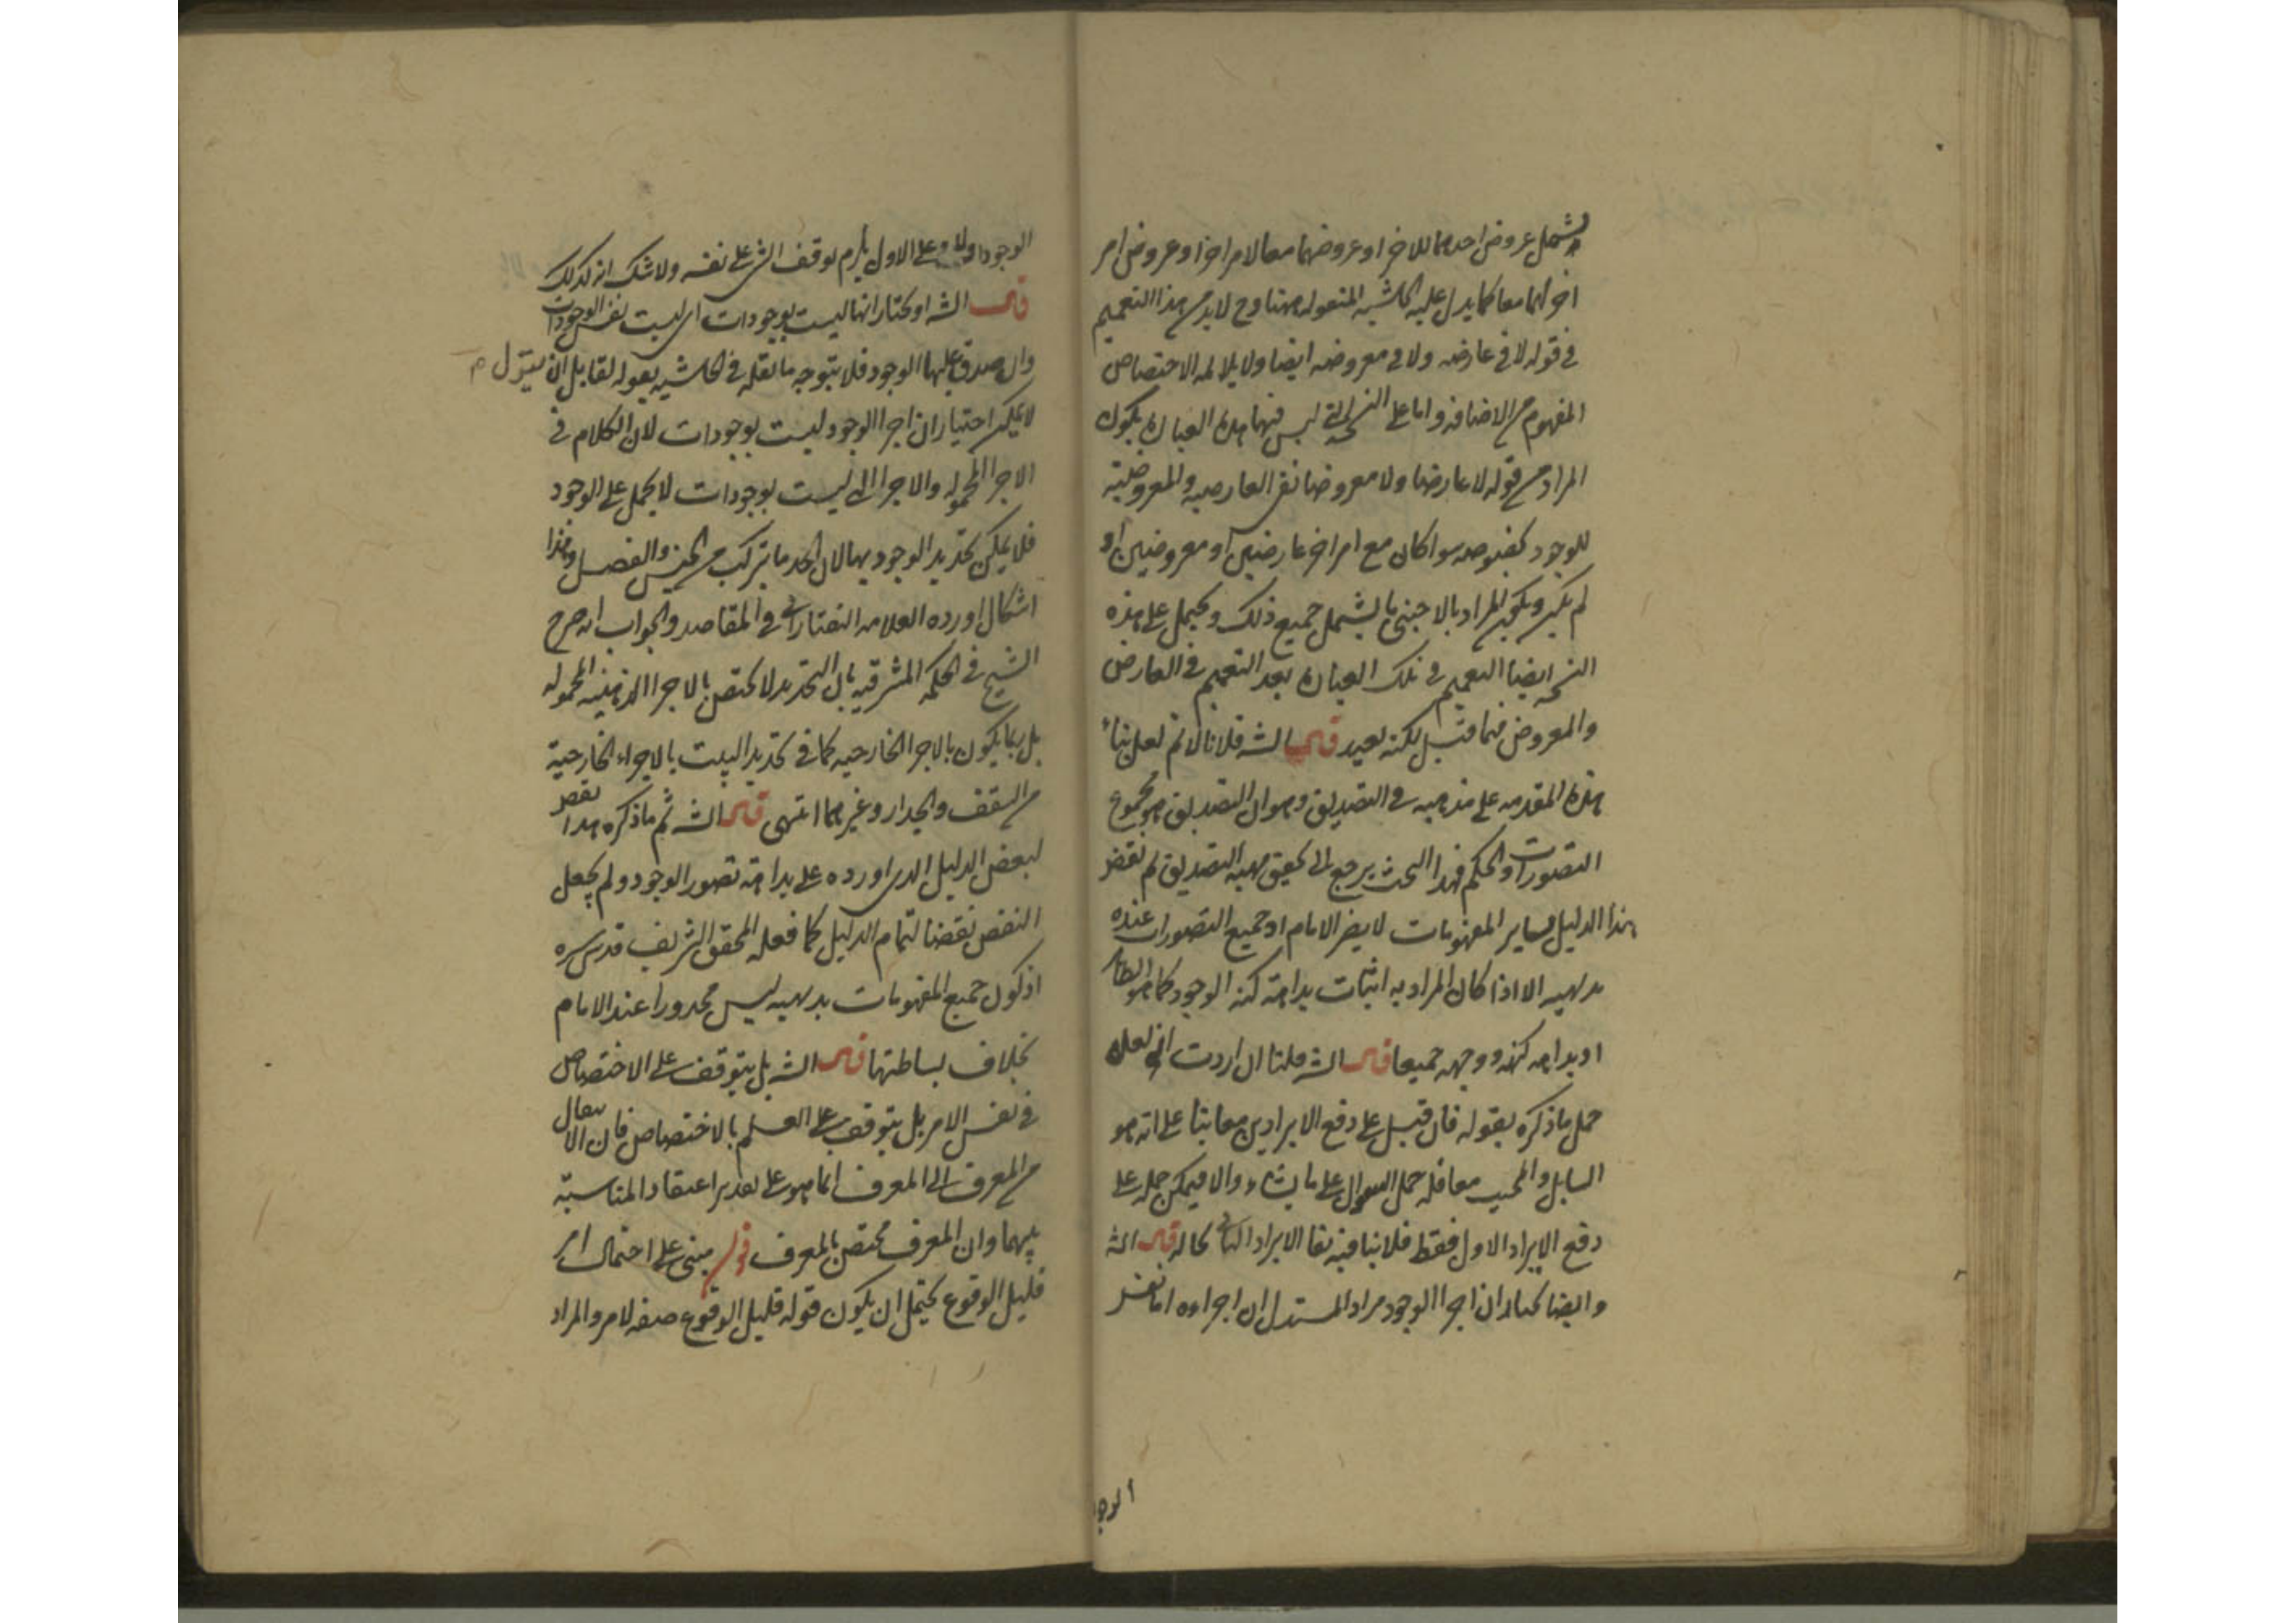 يشمل عروض احدهما للاخر او عروضهما معا لامر اخر او عروض امر
اخر لهما معا كما يدل عليه الحاشيه المنقوله ههنا وح لا بد من هذا التعميم
في قوله لا في عارضه ولا في معروضه ايضا ولا يلائمه الاختصاص
المفهوم من الاضافه واما على النسخه التي ليس فيها هذه العباره يكون
المراد من قوله لا عارضا ولا معروضا نفي العارضيه والمعروضية
للوجود بخصوصه سواء كان مع امر اخر عارضين او معروضين او
لم يكن ويكون المراد بالاجنبي ما يشمل جميع ذلك ويحمل على هذه
النسخه ايضا التعميم في تلك العباره بعد التعميم في العارض
والمعروض فيما قبل لكنه بعيد قال الشه قلنا لا نم لعل بناء
هذه المقدمه على مذهبه في التصديق وهو ان التصديق هو مجموع
التصورات والحكم فهذا البحث يرجع الى تحقيق مهيه التصديق ثم نقض
هذا الدليل بساير المفهومات لا يضر الامام اذ جميع التصورات عنده
بديهيه الا اذا كان المراد به اثبات بداهة كنه الوجود كما هو الظاهر
او بداهه كنهه ووجهه جميعا قال الشه قلنا ان اردت انه لعله
حمل ما ذكره بقوله فان قيل على دفع الايرادين معا بناء على انه هو
السايل والمجيب معا فله حمل السوال على ما يشاء والا فيمكن حمله على
دفع الايراد الاول فقط فلا ينافيه بقا الايراد الثاني بحاله قال الشه
وايضا نختار ان اجزا الوجود مراد المستدل ان اجزاءه اما نفس
الوجو
الوجود او لا وعلى الاول يلزم توقف الشي على نفسه ولا شك انه كذلك
قال الشه او نختار انها ليست بوجودات اى ليست نفس الوجودات
وان صدق عليها الوجود فلا يتوجه ما نقله في الحاشيه بقوله لقايل ان يقول م
لا يمكن اختيار ان اجزا الوجود ليست بوجودات لان الكلام في
الاجزا المحموله والاجزا التي ليست بوجودات لا يحمل على الوجود
فلا يمكن تحديد الوجود بها لان الحد ما يتركب من الجنس والفصل وهذا
اشكال اورده العلامه التفتازاني في المقاصد والجواب انه صرح
الشيخ في الحكمه المشرقيه بان التحديد لا يختص بالاجزا الذهنيه المحموله
بل ربما يكون بالاجزا الخارجيه كما في تحديد البيت بالاجزاء الخارجية
من السقف والجدار وغيرهما انتهى قال الشه ثم ما ذكره هذا نقض
لبعض الدليل الذي اورده على بداهة تصور الوجود ولم يجعل
النقض نقضا لتمام الدليل كما فعله المحقق الشريف قدس سره
اذ كون جميع المفهومات بديهيه ليس محذورا عند الامام
بخلاف بساطتها قال الشه بل يتوقف على الاختصاص
في نفس الامر بل يتوقف على العلم بالاختصاص فان الانتقال
من المعرف الى المعرف انما هو على تقدير اعتقاد المناسبة
بينهما وان المعرف مختص بالمعرف قوله مبنى على احتمال امر
قليل الوقوع يحتمل ان يكون قوله قليل الوقوع صفه لامر والمراد